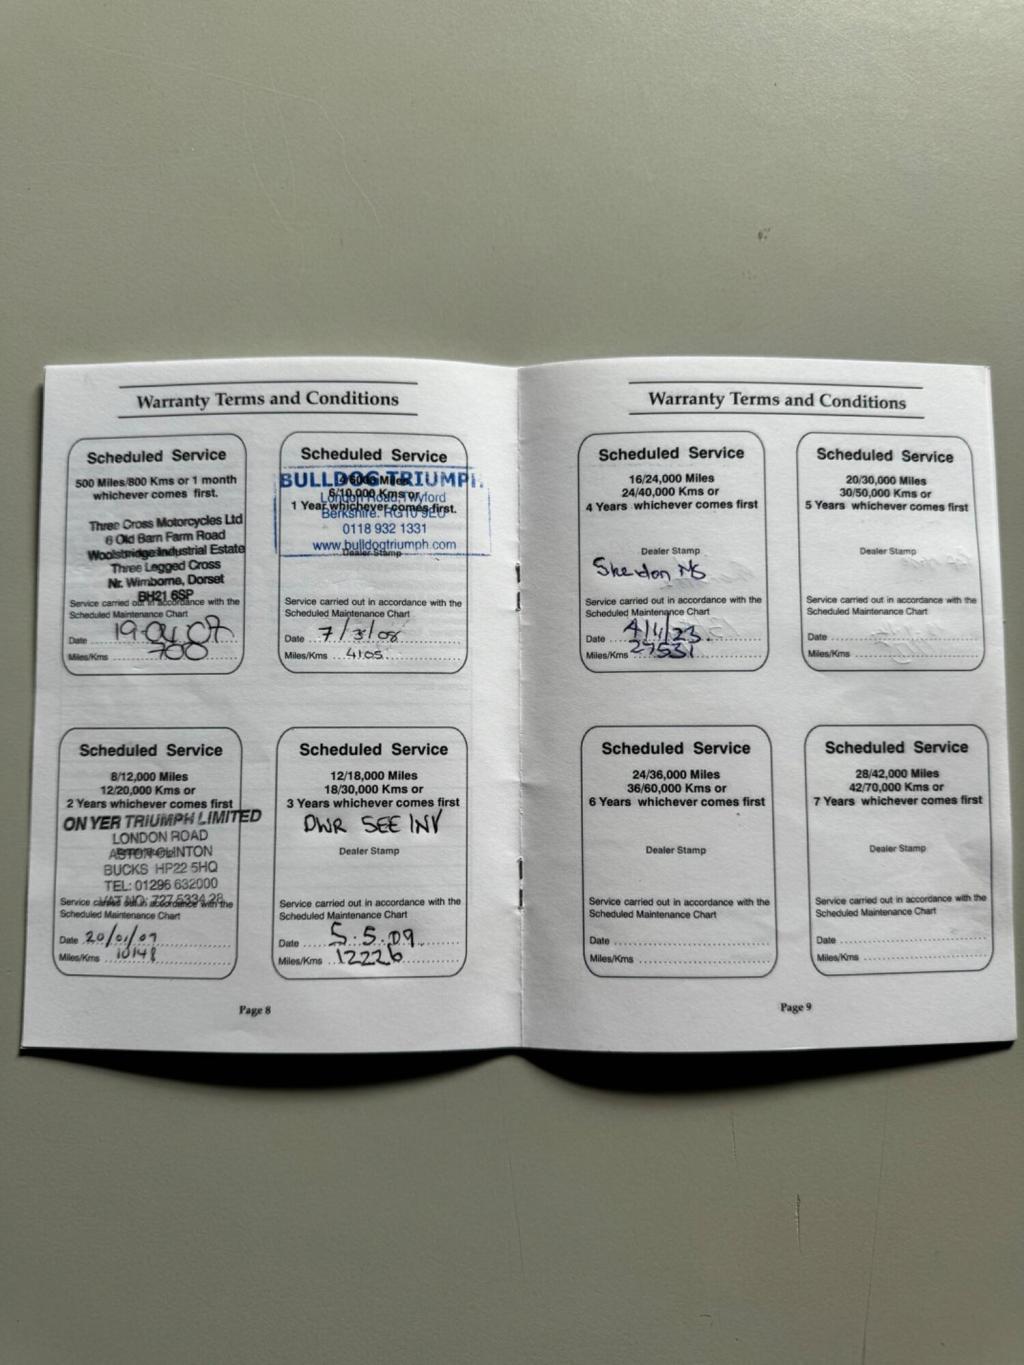 Warranty Terms and Conditions
Scheduled Service
500 Miles/800 Kms or 1 month
whichever comes first.
Three Cross Motorcycles Ltd
6 Old Barn Farm Road
Woolsbridge Industrial Estate
Three Legged Cross
Nr. Wimborne, Dorset
BH21 6SP
Service carried out in accordance with the
Scheduled Maintenance Chart
Date 19-04-07
Miles/Kms 700
Scheduled Service
BULLDOG TRIUMPH
6/10,000 Kms or
London Road, Twyford
1 Year whichever comes first.
Berkshire. RG10 9EU
0118 932 1331
www.bulldogtriumph.com
Dealer Stamp
Service carried out in accordance with the
Scheduled Maintenance Chart
Date 7/3/08
Miles/Kms 4105
Scheduled Service
8/12,000 Miles
12/20,000 Kms or
2 Years whichever comes first
ON YER TRIUMPH LIMITED
LONDON ROAD
ASTON CLINTON
BUCKS HP22 5HQ
TEL: 01296 632000
VAT NO: 727 5334 28
Service carried out in accordance with the
Scheduled Maintenance Chart
Date 20/01/09
Miles/Kms 10148
Scheduled Service
12/18,000 Miles
18/30,000 Kms or
3 Years whichever comes first
DWR SEE INV
Dealer Stamp
Service carried out in accordance with the
Scheduled Maintenance Chart
Date 5.5.09
Miles/Kms 12226
Page 8
Warranty Terms and Conditions
Scheduled Service
16/24,000 Miles
24/40,000 Kms or
4 Years whichever comes first
Dealer Stamp
Service carried out in accordance with the
Scheduled Maintenance Chart
Date 4/4/23
Miles/Kms 27531
Scheduled Service
20/30,000 Miles
30/50,000 Kms or
5 Years whichever comes first
Dealer Stamp
Service carried out in accordance with the
Scheduled Maintenance Chart
Date
Miles/Kms
Scheduled Service
24/36,000 Miles
36/60,000 Kms or
6 Years whichever comes first
Dealer Stamp
Service carried out in accordance with the
Scheduled Maintenance Chart
Date
Miles/Kms
Scheduled Service
28/42,000 Miles
42/70,000 Kms or
7 Years whichever comes first
Dealer Stamp
Service carried out in accordance with the
Scheduled Maintenance Chart
Date
Miles/Kms
Page 9